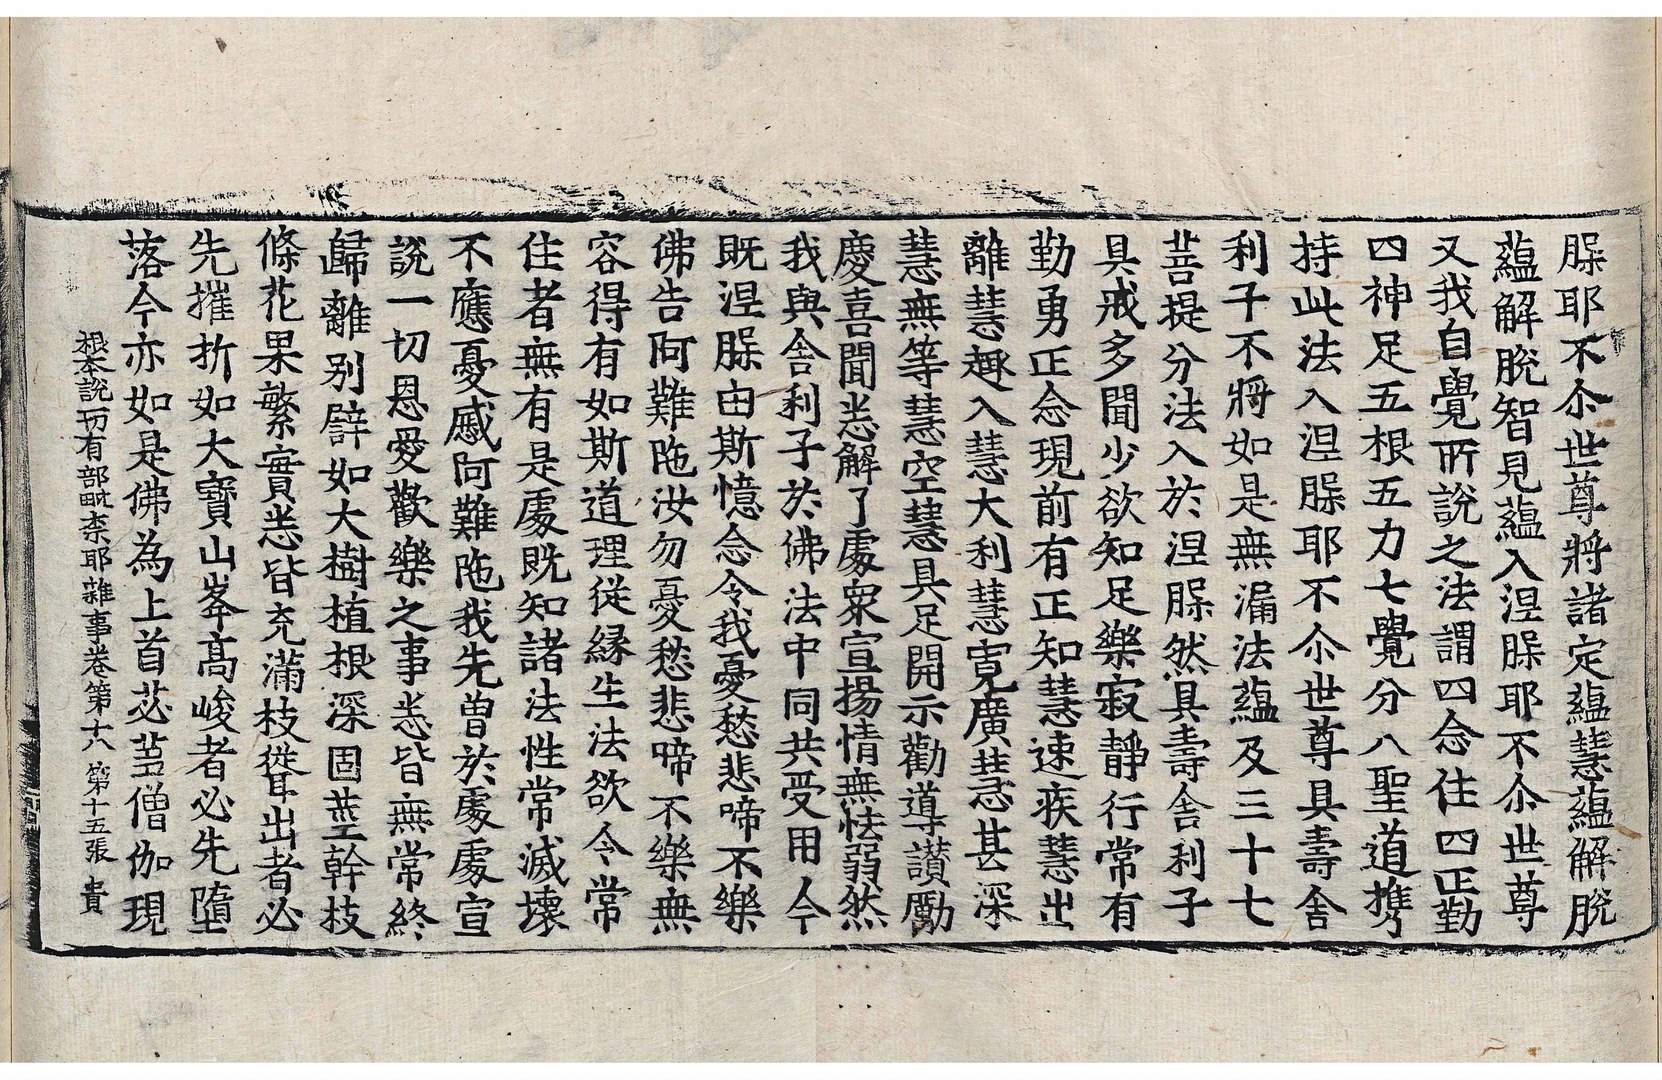 䏶耶不尒世尊將諸定蘊慧蘊解脫
蘊解脫智見蘊入涅䏶耶不尒世尊
又我自覺所說之法謂四念住四正勤
四神足五根五力七覺分八聖道擕
持此法入涅䏶耶不尒世尊具壽舍
利子不將如是無漏法蘊及三十七
菩提分法入於涅䏶然具壽舍利子
具戒多聞少欲知足樂寂靜行常有
勤勇正念現前有正知慧速疾慧出
離慧趣入慧大利慧寬廣慧甚深
慧無等慧空慧具足開示勸導讚勵
慶喜聞恙解了處衆宣揚情無怯弱然
我與舍利子於佛法中同共受用今
既涅䏶由斯憶念令我憂愁悲啼不樂
佛告阿難陁汝勿憂愁悲啼不樂無
容得有如斯道理從緣生法欲令常
住者無有是處既知諸法性常滅壞
不應憂慼阿難陁我先曾於處處宣
說一切恩愛歡樂之事恙皆無常終
歸離别譬如大樹植根深固莖幹枝
條花果繁實恙皆充滿枝聳出者必
先摧折如大寶山峯髙峻者必先墮
落今亦如是佛為上首苾蒭僧伽現
根本說一切有部毗柰耶雜事卷第十八 第十五張 貴